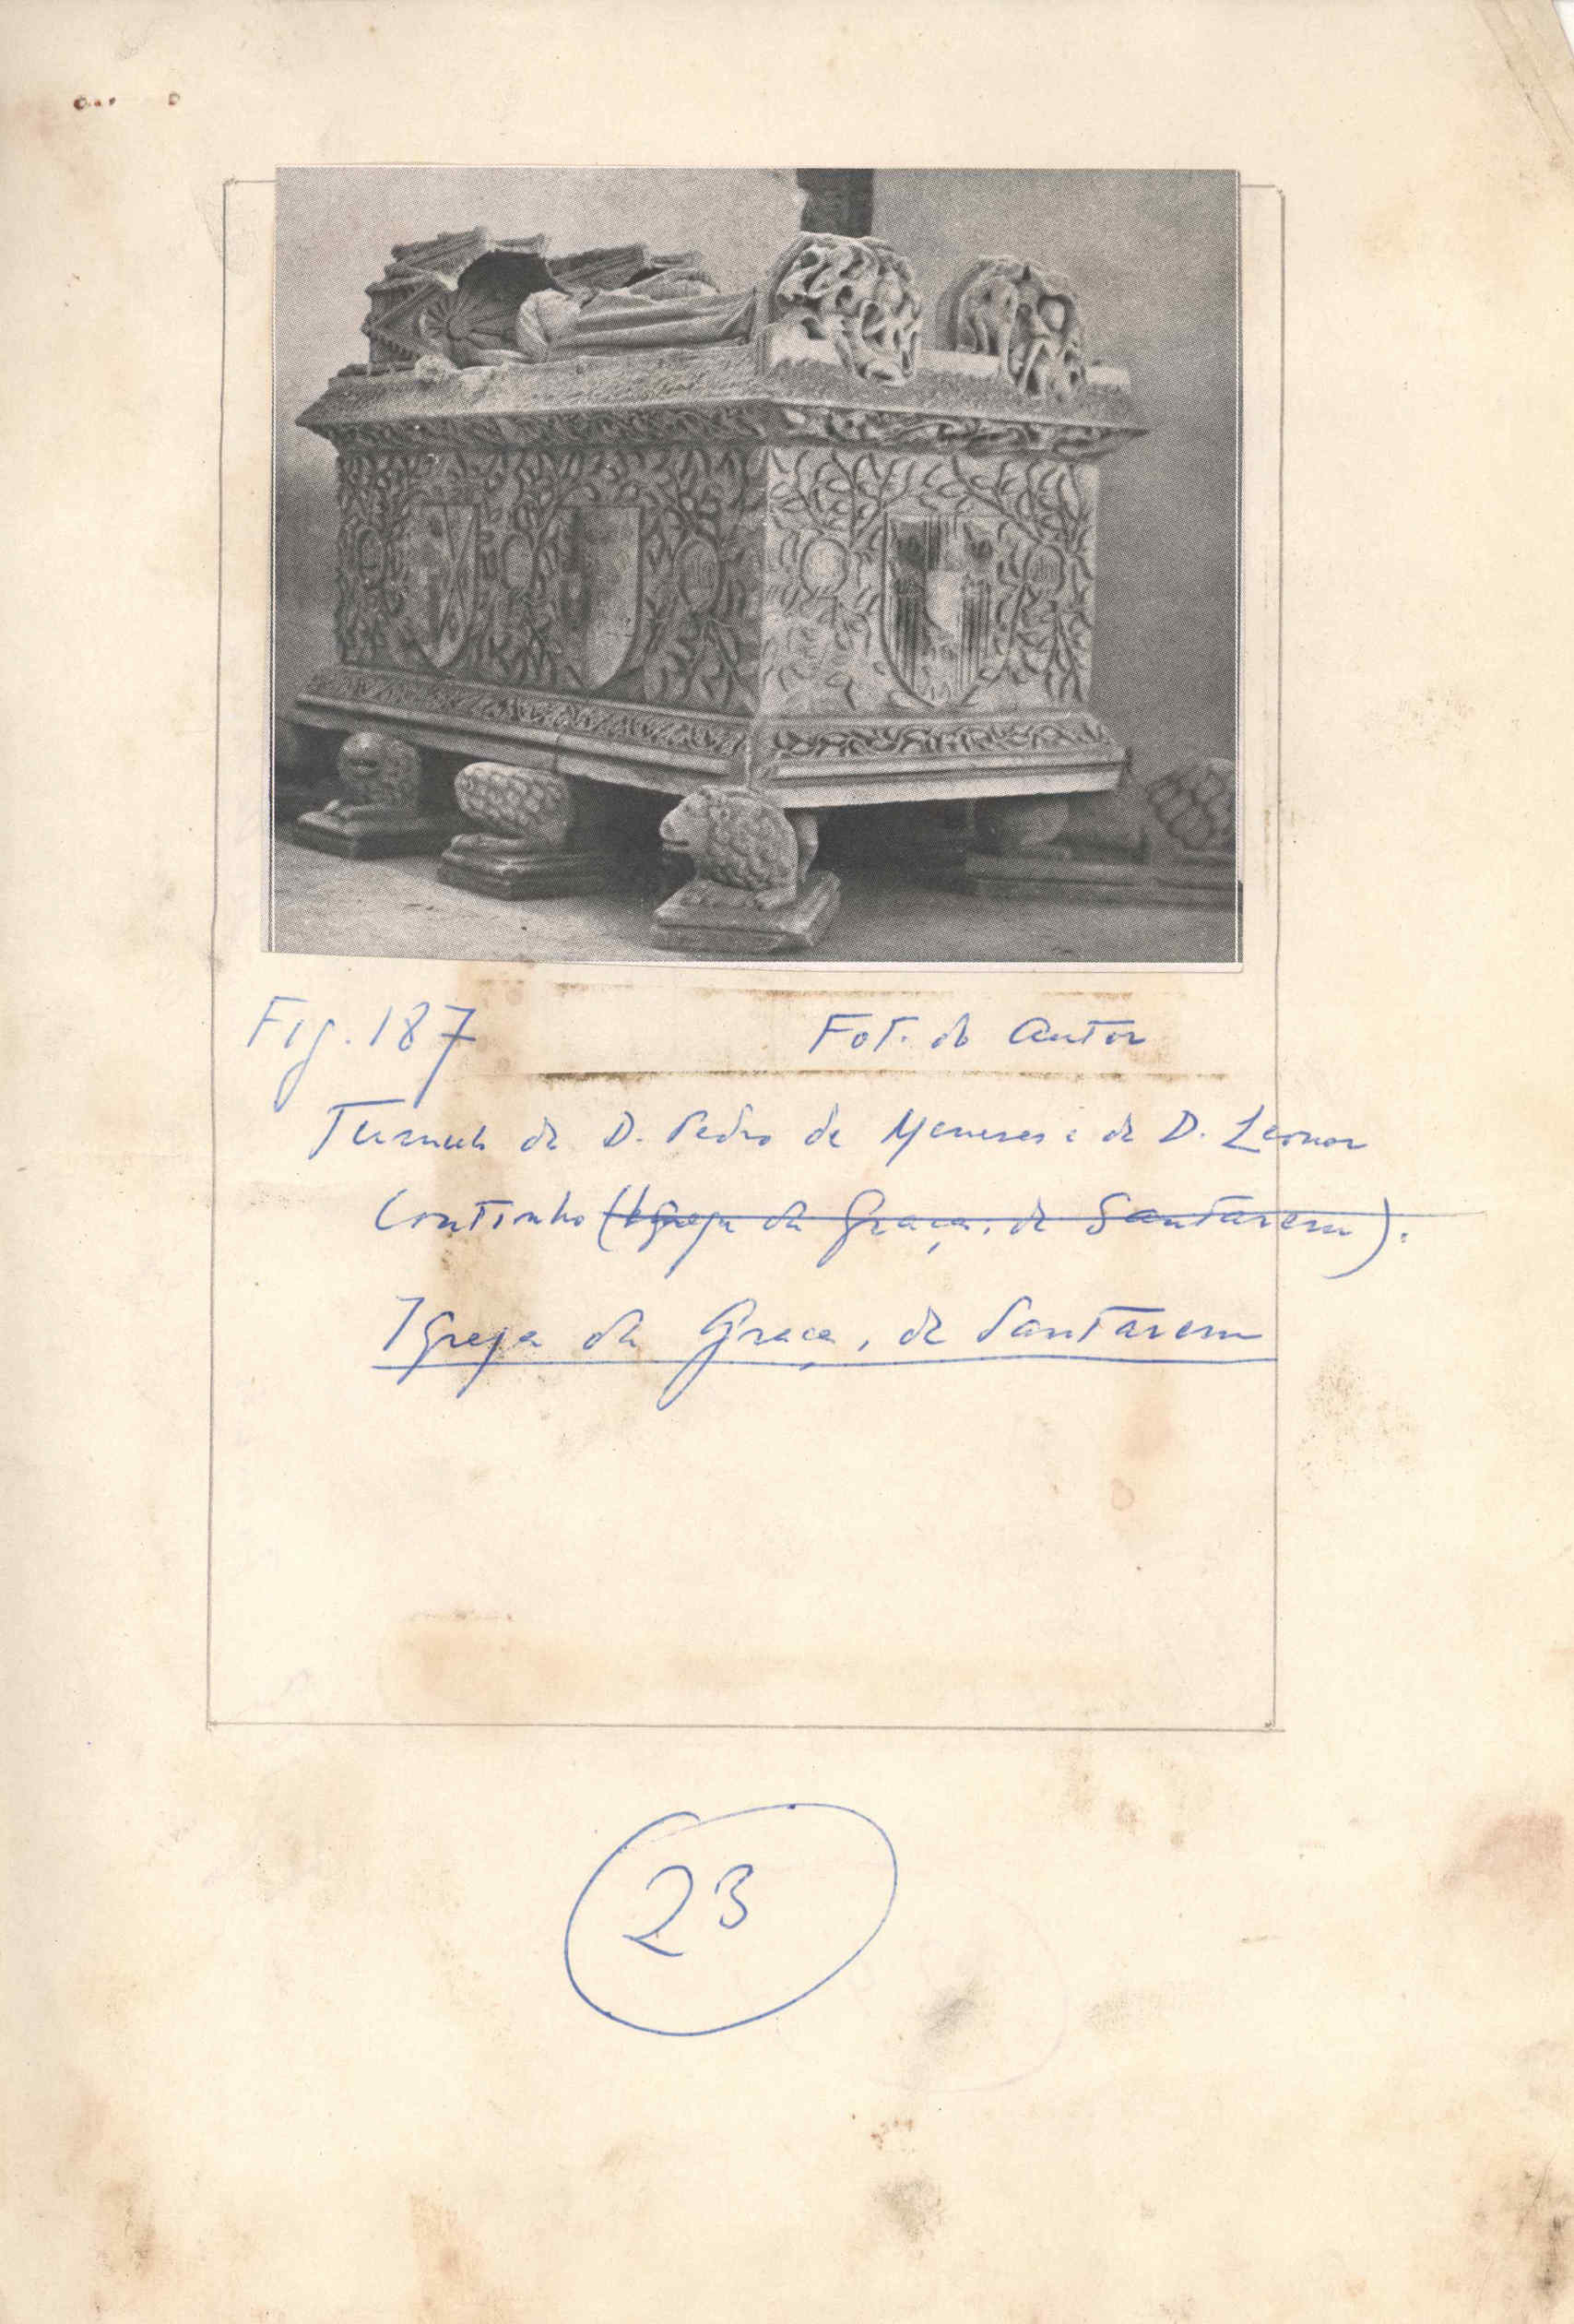 Fig. 187
Fot. do Autor
Tumulo de D. Pedro de Meneses e de D. Leonor
Coutinho (Igreja da Graça, de Santarem).
Igreja da Graça, de Santarem
23